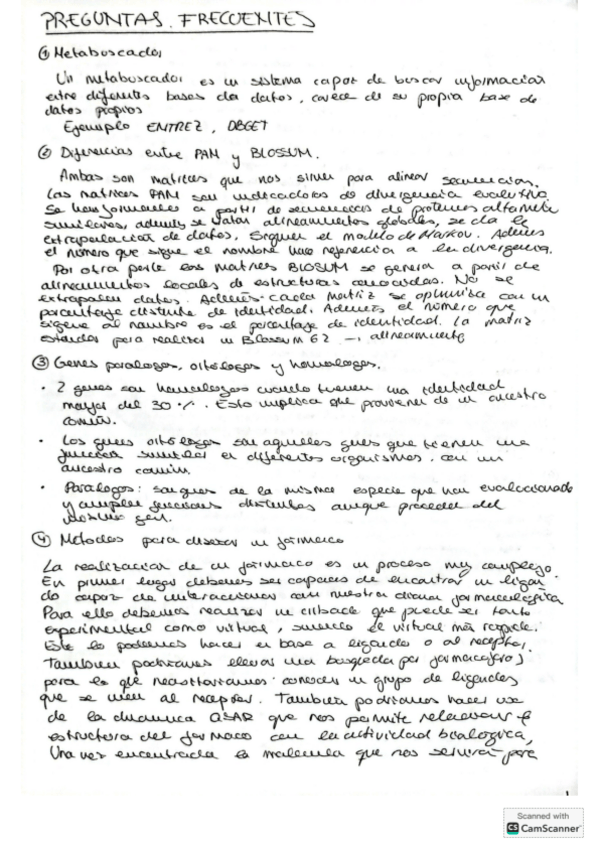 PREGUNTAS FRECUENTES
① Metabuscador
Un metabuscador es un sistema capaz de buscar información
entre diferentes bases de datos, carece de su propia base de
datos propios
Ejemplo ENTREZ, DBGET
② Diferencias entre PAM y BLOSSUM.
Ambas son matrices que nos sirven para alinear secuencias.
Las matrices PAM son indicadores de divergencia evolutiva
Se han formado a partir de secuencias de proteínas altamente
similares, además se usan alineamientos globales, se da la
extrapolación de datos. Siguen el modelo de Markov. Además
el número que sigue el nombre hace referencia a la divergencia.
Por otra parte las matrices BLOSUM se genera a partir de
alineamientos locales de estructuras conocidas. No se
extrapolan datos. Además cada matriz se optimiza con un
porcentaje distinto de identidad. Además el número que
sigue al nombre es el porcentaje de identidad. La matriz
estándar para realizar un Blossum 62 → alineamiento
③ Genes paralogos, ortólogos y homologos.
• 2 genes son homologos cuando tienen una identidad
mayor del 30 %. Esto implica que provienen de un ancestro
común.
• Los genes ortólogos son aquellos genes que tienen una
función similar en diferentes organismos, con un
ancestro común.
• Paralogos: son genes de la misma especie que han evolucionado
y cumplen funciones distintas aunque proceden del
mismo gen.
④ Metodos para diseñar un farmaco
La realización de un farmaco es un proceso muy complejo.
En primer lugar debemos ser capaces de encontrar un ligan-
do capaz de interaccionar con nuestra diana farmacologica
Para ello debemos realizar un cribado que puede ser tanto
experimental como virtual, siendo el virtual más rapido.
Este lo podemos hacer en base a ligando o al receptor.
Tambien podriamos llevar una busqueda por farmacoforos
para lo que necesitariamos conocer un grupo de ligandos
que se unen al receptor. Tambien podriamos hacer uso
de la dinamica QSAR que nos permite relacionar
estructura del farmaco con la actividad biologica,
Una vez encontrada la molecula que nos servira para
1
Scanned with
CS CamScanner